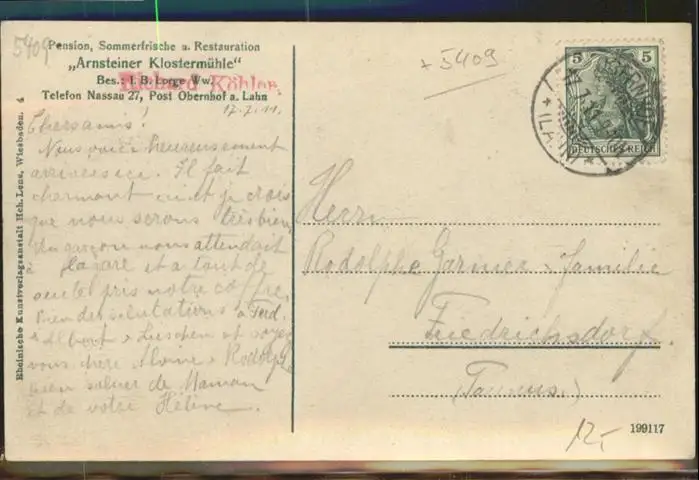 5409
Pension, Sommerfrische u. Restauration
„Arnsteiner Klostermühle"
Bes.: I. B. Lorge Ww.
Richard Köhler.
Telefon Nassau 27, Post Obernhof a. Lahn
17.7.11.
Chers amis!
Nous voici heureusement
arrivés ici. Il fait
charmant ici et je crois
que nous serons très bien.
Un garçon nous attendait
à la gare et a tout de
suite pris notre coffre.
Bien des salutations à Ferd.
Albert, Luschen et soyez
vous chère Aline, Rodolphe
bien saluer de Maman
et de votre Hélène.
Rheinische Kunstverlagsanstalt Hch. Lons, Wiesbaden. 4
+ 5409
5 5
DEUTSCHES REICH
(LAHN)
Herrn
Rodolphe Garnier, Familie
Friedrichsdorf.
(Taunus.)
12,-
199117